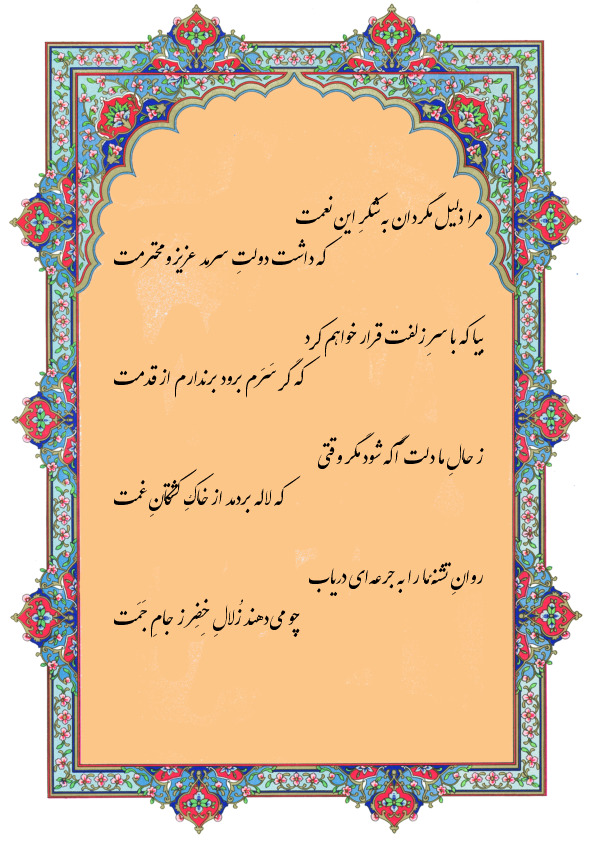 مرا ذلیل مگردان به شکرِ این نعمت
که داشت دولتِ سرمد عزیز و محترمت
بیا که با سرِ زلفت قرار خواهم کرد
که گر سَرَم برود برندارم از قدمت
ز حالِ ما دلت آگه شود مگر وقتی
که لاله بردمد از خاکِ کشتگانِ غمت
روانِ تشنهٔ ما را به جرعه‌ای دریاب
چو می‌دهند زُلالِ خِضِر ز جامِ جَمَت